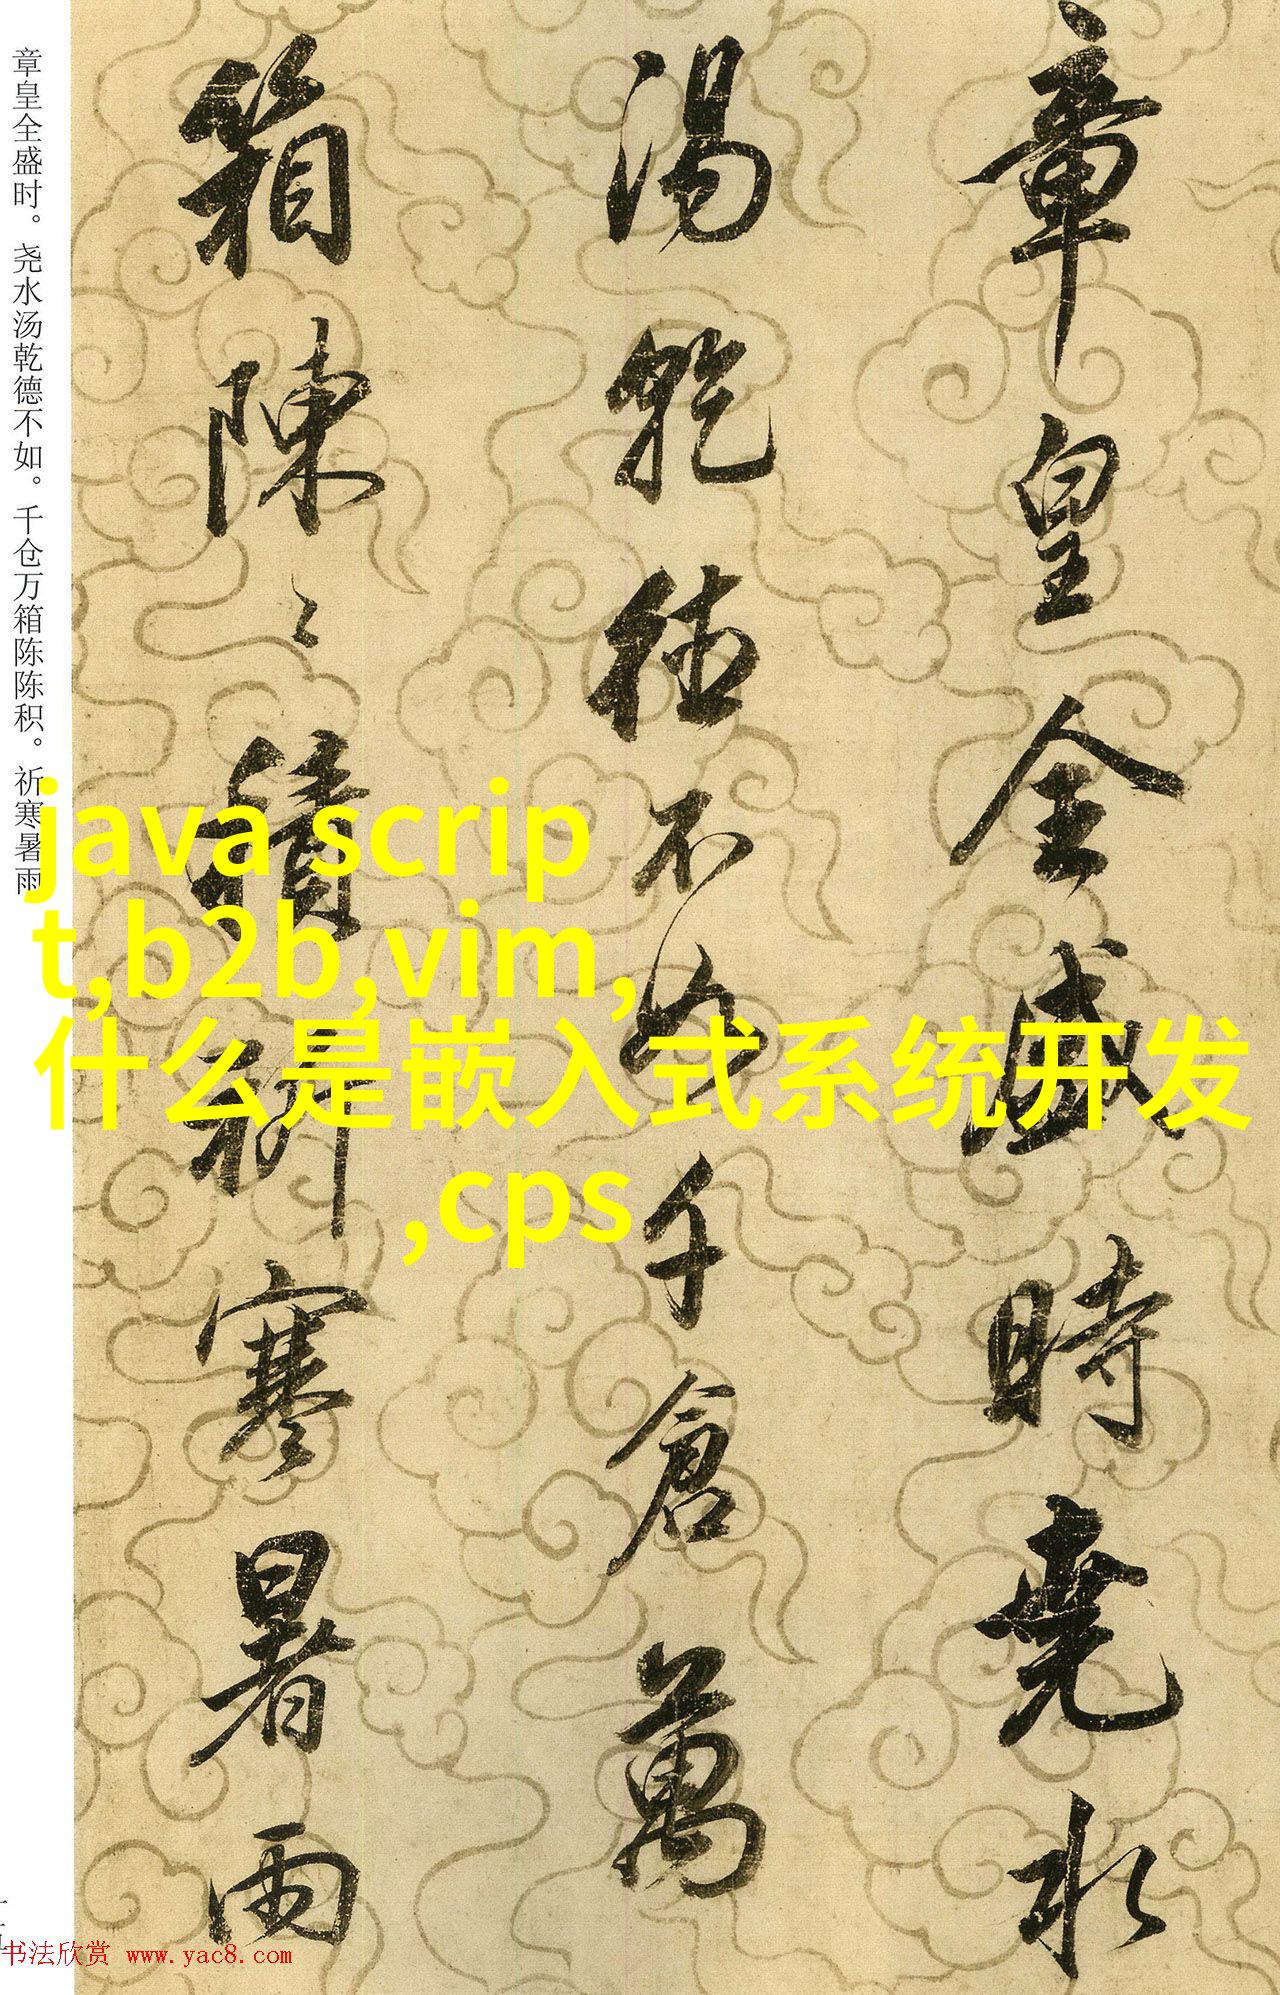 章皇全盛時堯水
湯乾德不如千倉萬
箱陳〻積祈寒暑雨
章皇全盛时。尧水汤乾德不如。千仓万箱陈陈积。祈寒暑雨
java scrip
t,b2b,vim,
什么是嵌入式系统开发
,cps
书法欣赏 www.yac8.com